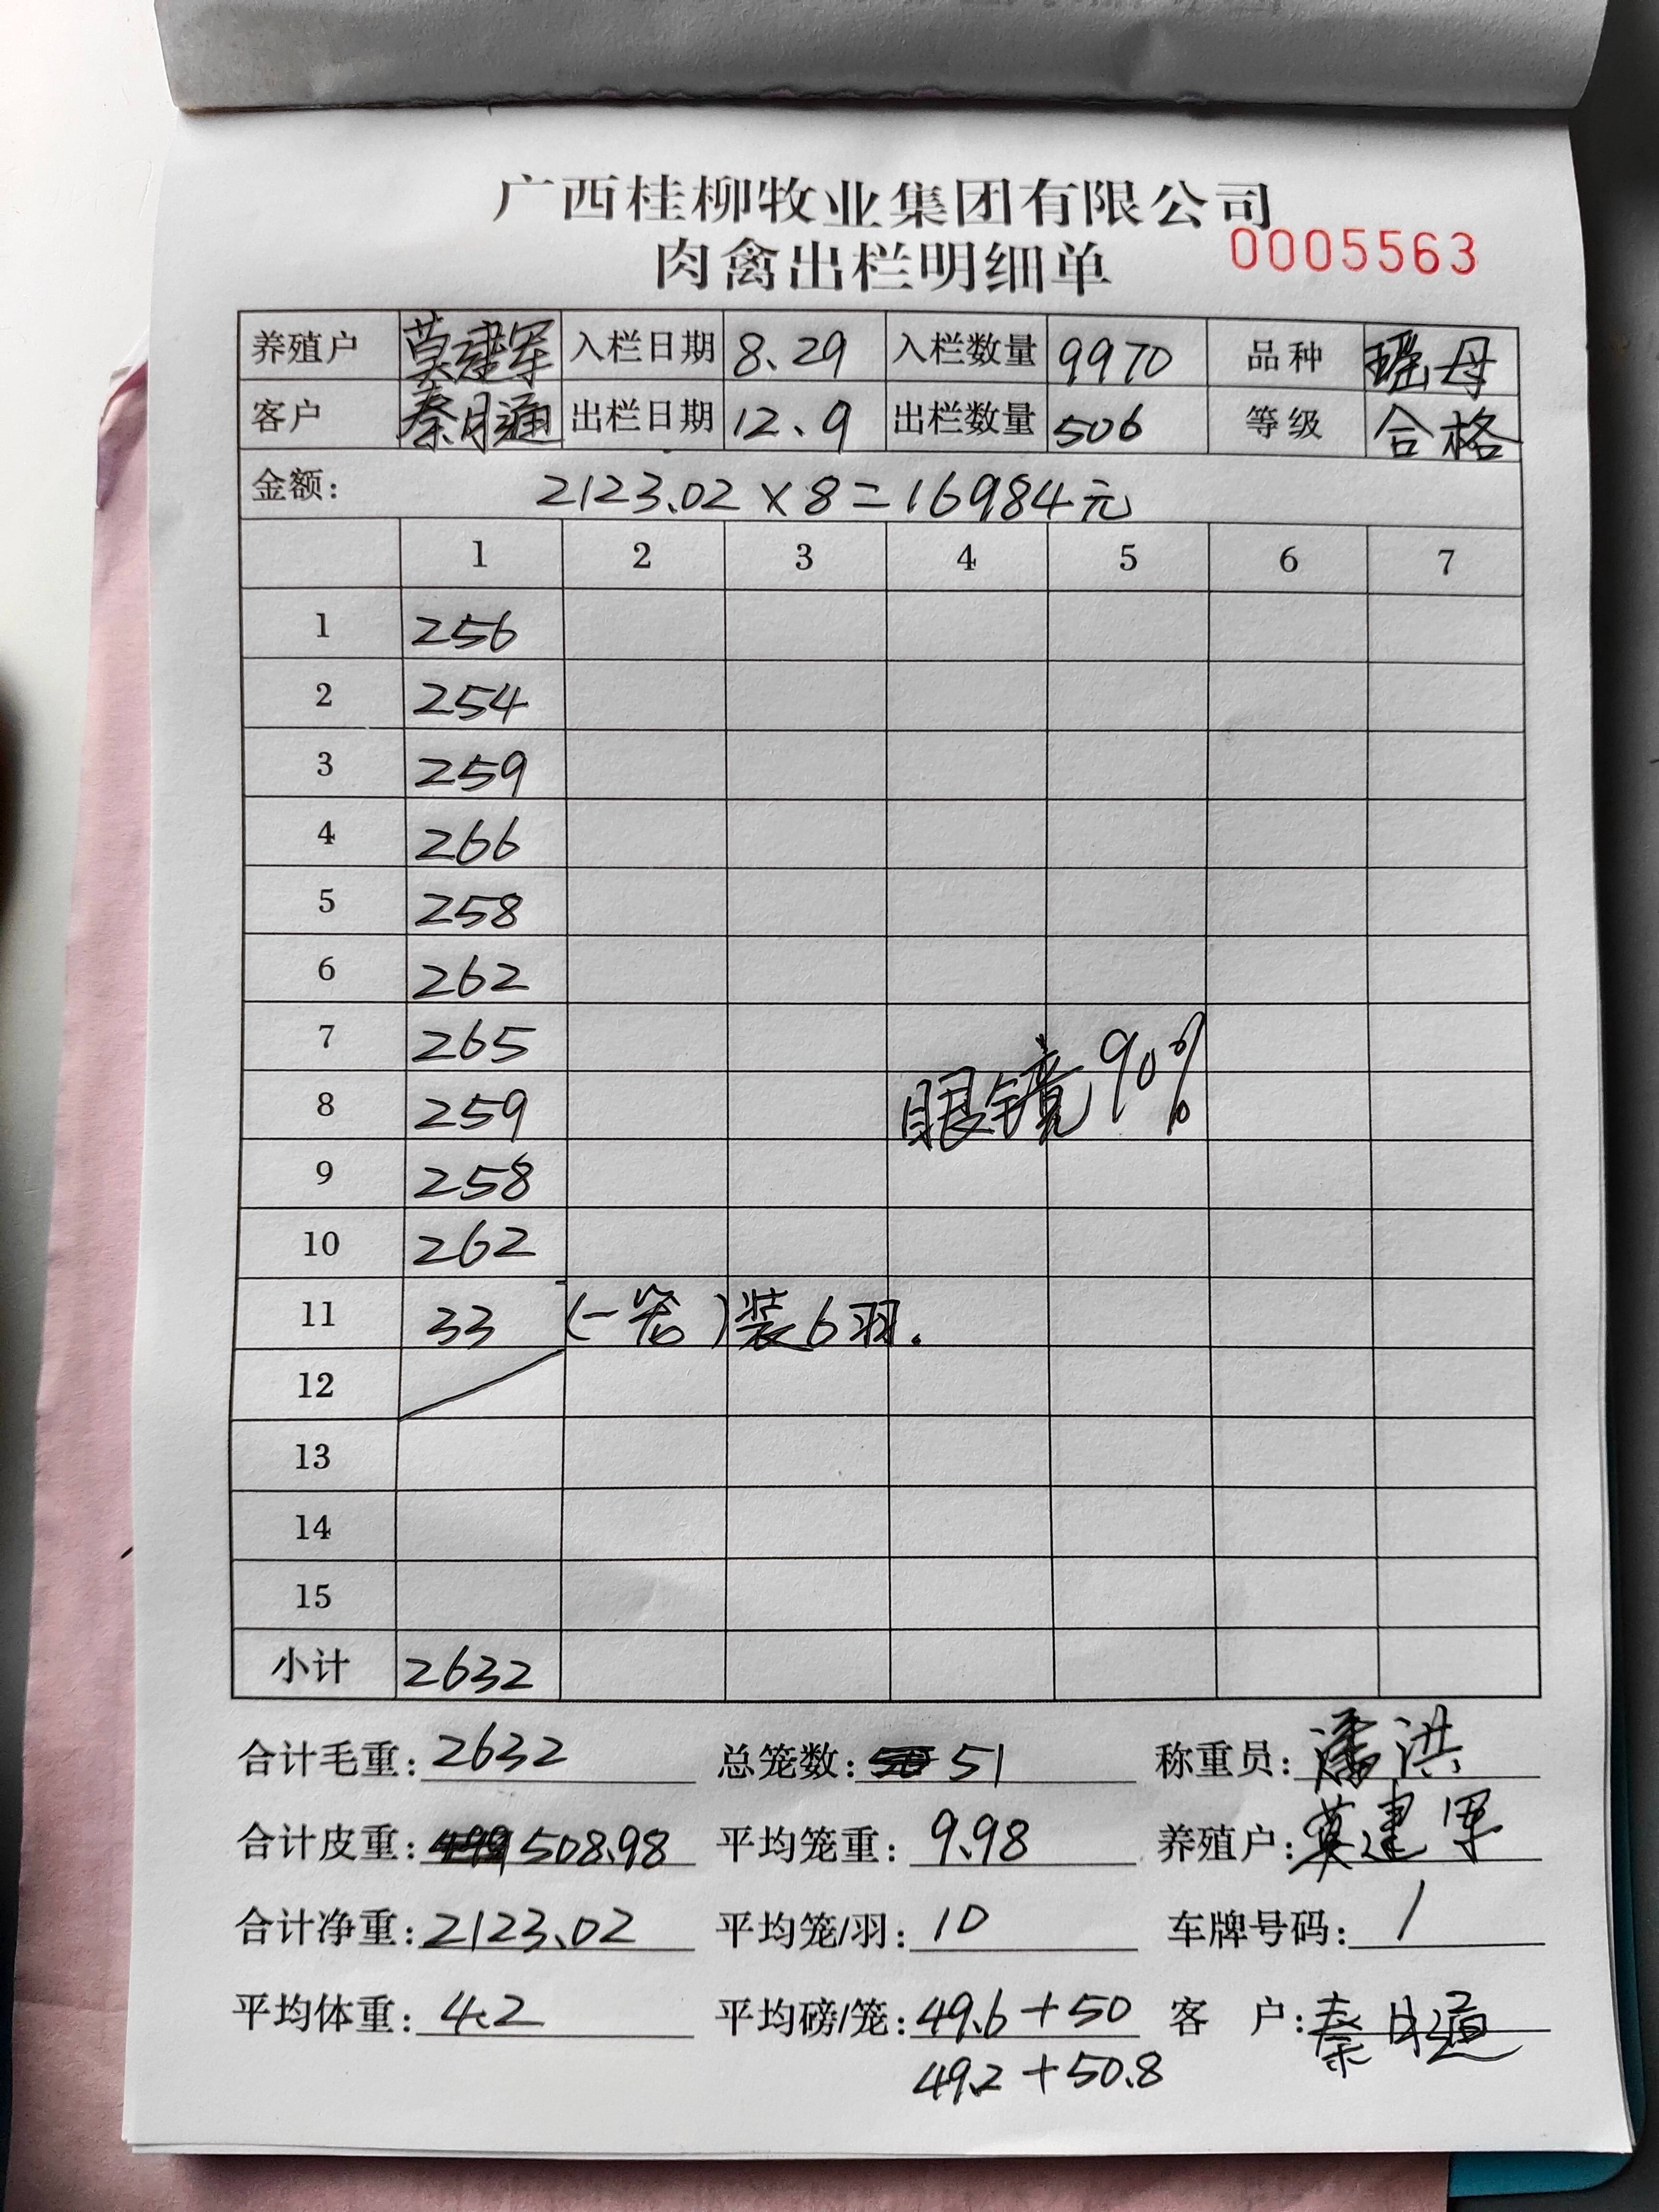 广西桂柳牧业集团有限公司
肉禽出栏明细单 0005563
养殖户 莫建军 入栏日期 8、29 入栏数量 9970 品种 瑶母
客户 秦月通 出栏日期 12、9 出栏数量 506 等级 合格
金额: 2123.02×8=16984元
1 2 3 4 5 6 7
1 256
2 254
3 259
4 266
5 258
6 262
7 265
8 259 眼镜90%
9 258
10 262
11 33 (一笼)装6羽.
12
13
14
15
小计 2632
合计毛重: 2632 总笼数: 51 称重员: 潘洪
合计皮重: 508.98 平均笼重: 9.98 养殖户: 莫建军
合计净重: 2123.02 平均笼/羽: 10 车牌号码: /
平均体重: 4.2 平均磅/笼: 49.6+50 客 户: 秦月通
49.2+50.8